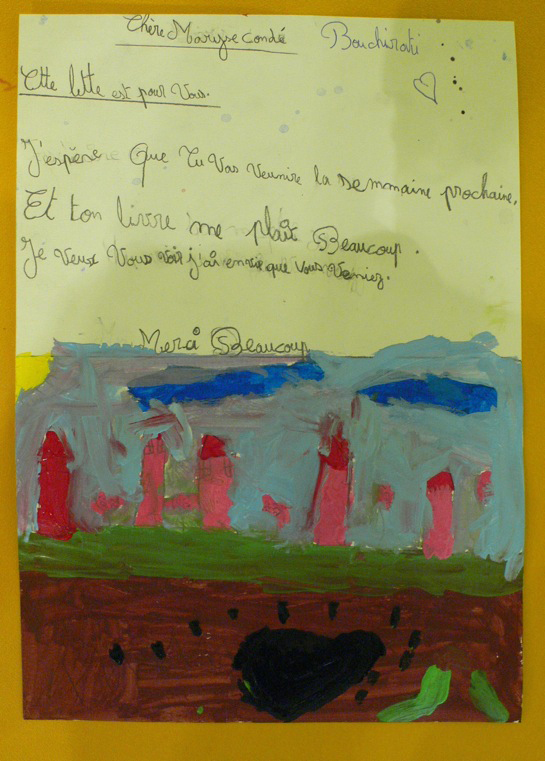 Chère Maryse condé Bouchirati
Cette lette est pour Vous.
J'espère Que Tu Vas Veunire la semmaine prochaine.
Et ton livre me plaît Beaucoup.
Je veux Vous voir j'ai envie que vous Veniez.
Merci Beaucoup